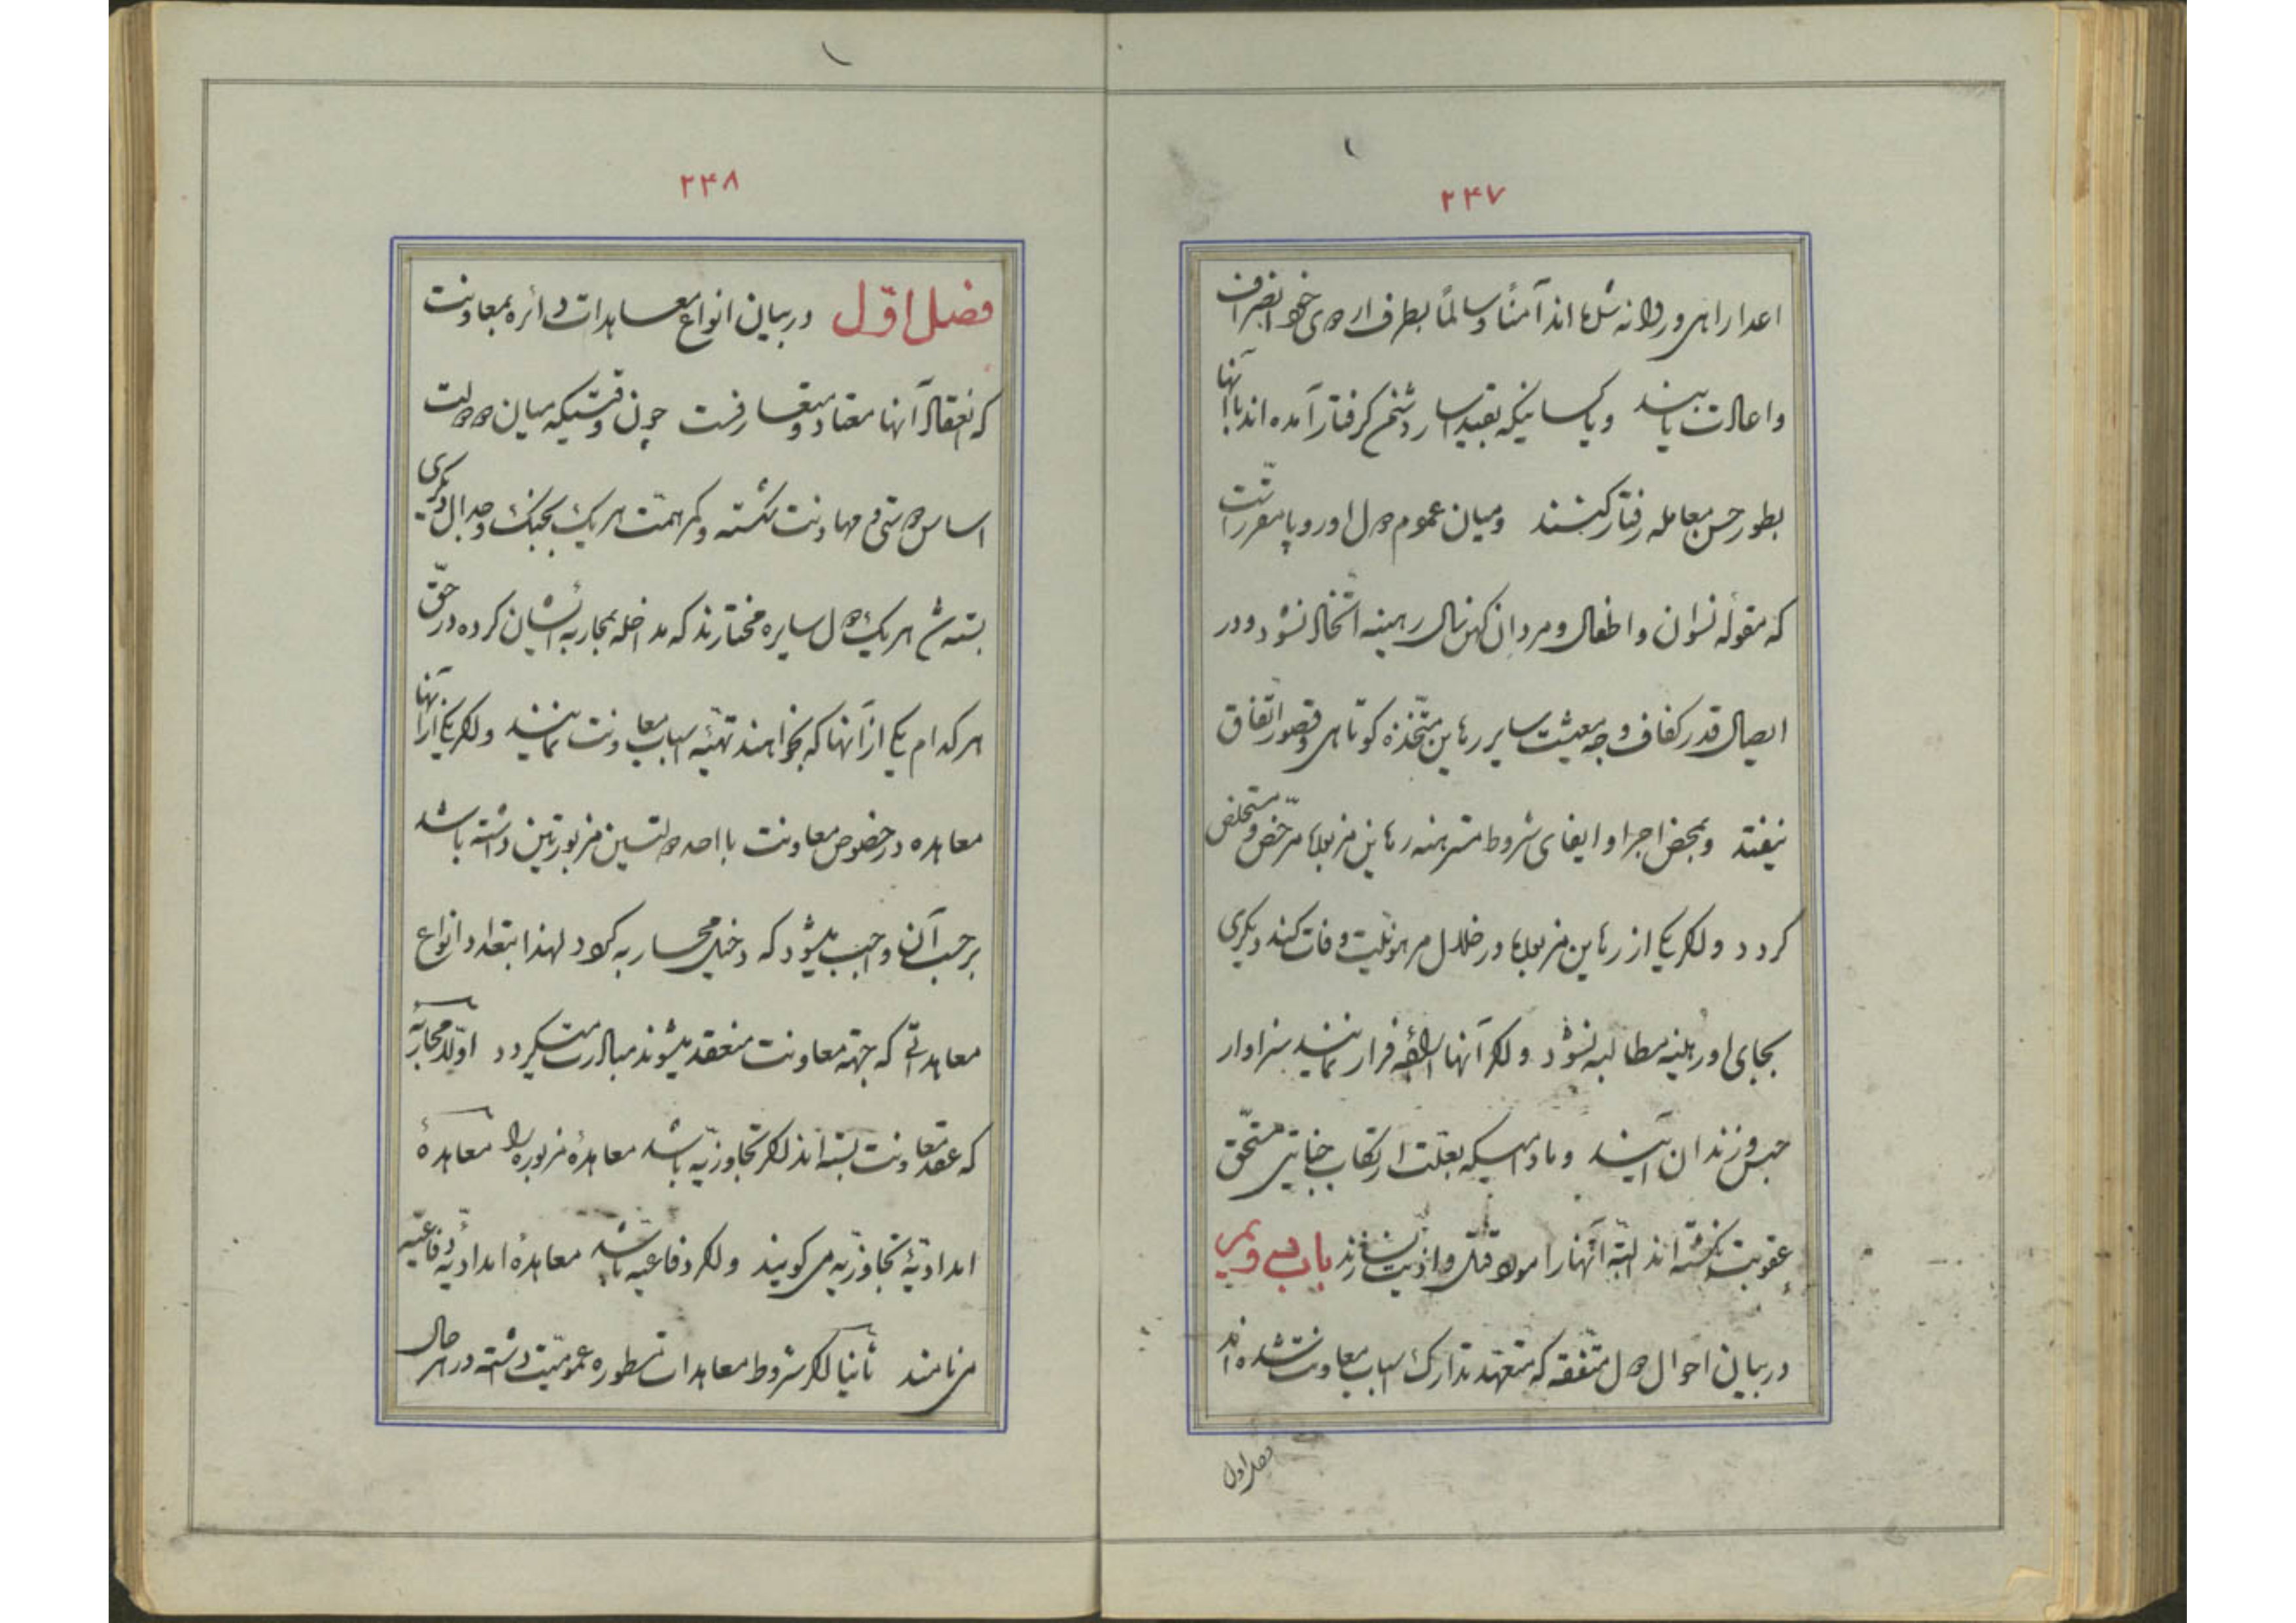 ۲۴۷
اعدا راهی و روانه شده‌اند آمناً و سالماً بطرف اردوی خود انصراف
و اعادت یابند و یا کسانیکه بقید اسار دشمن گرفتار آمده‌اند با آنها
بطور حسن معامله رفتار کنند و میان عموم دول اوروپا مقرر است
که مقوله نسوان و اطفال و مردان کهن سال رهینه اتخاذ نشود و در
ایصال قدر کفاف و جه معیشت سایر رهاین متخذه کوتاهی و قصور اتفاق
نیفتد و بمحض اجرا و ایفای شروط مسترهنه رهاین مزبوره مرخص و مستخلص
گردد و اگر یکی از رهاین مزبوره در خلال مرهونیت وفات کند دیگری
بجای او رهینه مطالبه نشود و اگر آنها اراده فرار نمایند سزاوار
حبس و زندان آیند و مادامیکه بعلت ارتکاب جنایتی مستحق
عقوبت نگشته‌اند البته آنها را مورد قتل و اذیت نسازند باب دویمی
در بیان احوال دول متفقه که متعهد تدارک اسباب معاونت شده‌اند
فصل اول
۲۴۸
فصل اوّل در بیان انواع معاهدات دائره بمعاونت
که انعقاد آنها معتاد و متعارفست چون وقتیکه میان دو دولت
اساس دوستی و مهاونت شکسته و کمر همت هر یک بجنگ و جدال دیگری
بسته شد هر یک دول سایره مختارند که مداخله بمحاربه ایشان کرده در حقّ
هر کدام یکی از آنها که بخواهند تهیّه اسباب معاونت نمایند و اگر یکی از آنها
معاهده در خصوص معاونت با احد دولتین مزبورتین داشته باشد
برحسب آن واجب میشود که دخیل محاربه گردد لهذا بتعداد انواع
معاهداتی که جهته معاونت منعقد میشوند مبادرت میگردد اولاً محاربهٔ
که عقد معاونت بسته‌اند اگر تجاوزیه باشد معاهدهٔ مزبوره را معاهدهٔ
امدادیّهٔ تجاوزیّه می‌گویند و اگر دفاعیه باشد معاهدهٔ امدادیّهٔ دفاعیّه
می‌نامند ثانیا اگر شروط معاهدات مسطوره عمومیّت داشته در هر حال